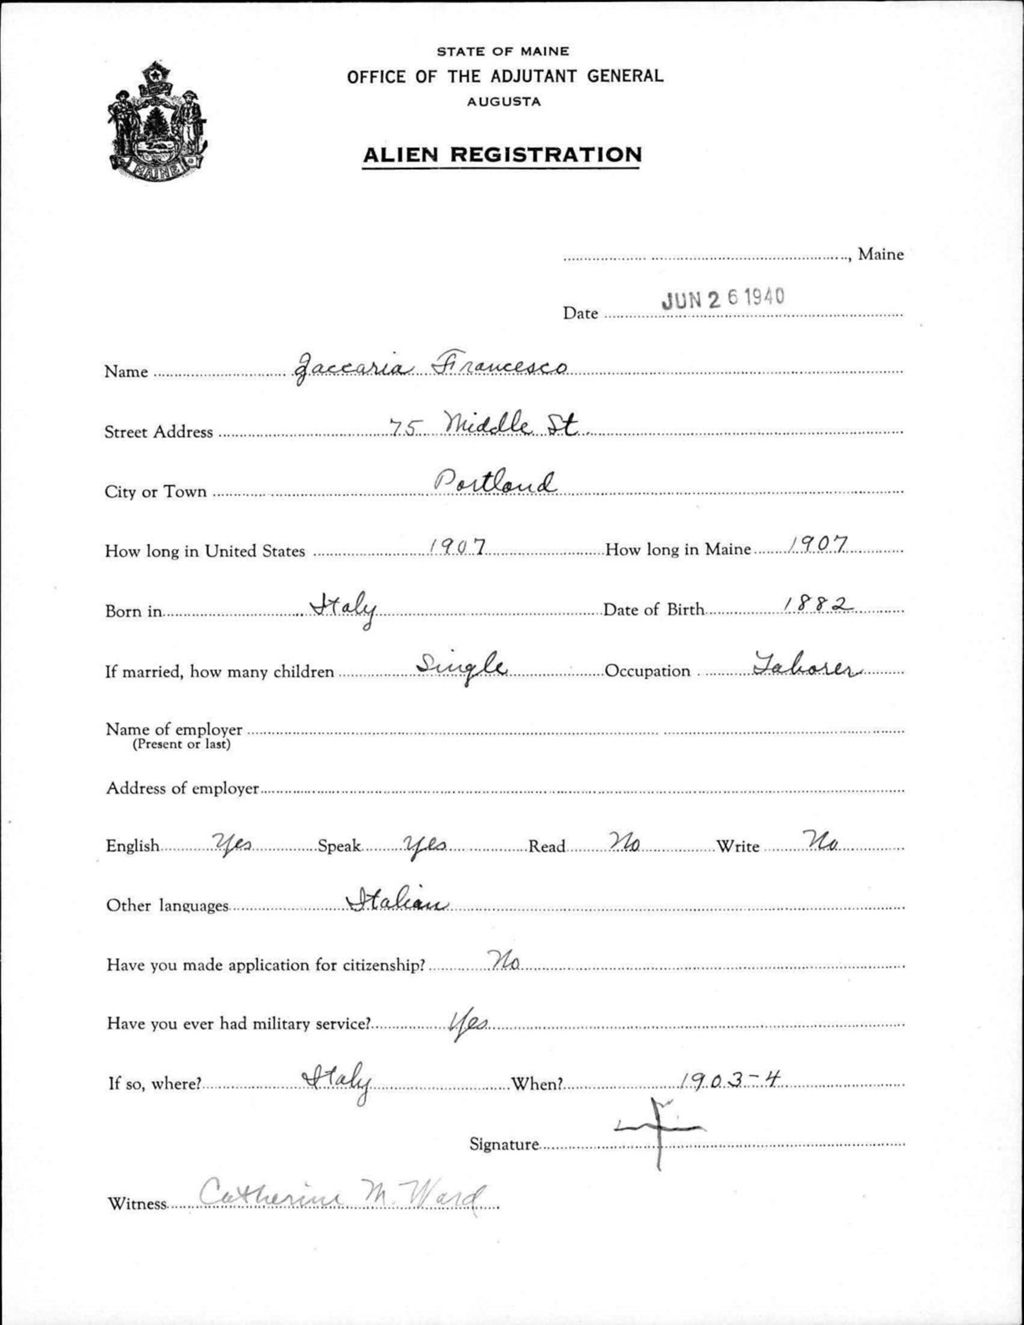 STATE OF MAINE
OFFICE OF THE ADJUTANT GENERAL
AUGUSTA
ALIEN REGISTRATION
MAINE
, Maine
Date JUN 26 1940
Name Zaccaria Francesco
Street Address 75 Middle St.
City or Town Portland
How long in United States 1907 How long in Maine 1907
Born in Italy Date of Birth 1882
If married, how many children Single Occupation Laborer
Name of employer
(Present or last)
Address of employer
English Yes Speak Yes Read No Write No
Other languages Italian
Have you made application for citizenship? No
Have you ever had military service? Yes
If so, where? Italy When? 1903-4
Signature
Witness Catherine M. Ward